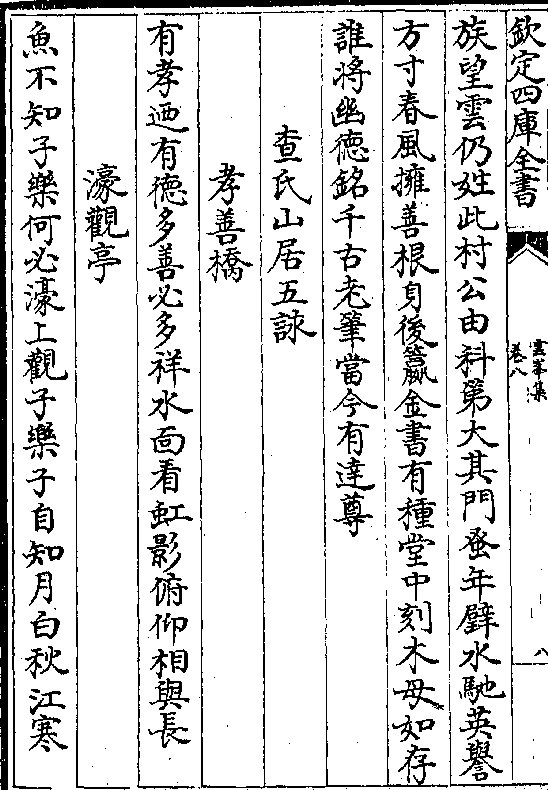 欽定四庫全書
雲峯集
卷八
八
族望雲仍姓此村公由科第大其門蚤年壁水馳英譽
方寸春風擁善根身後籯金書有種堂中刻木母如存
誰將幽德銘千古老筆當今有達尊
查氏山居五詠
孝善橋
有孝迺有德多善必多祥水面看虹影俯仰相與長
濠觀亭
魚不知子樂何必濠上觀子樂子自知月白秋江寒